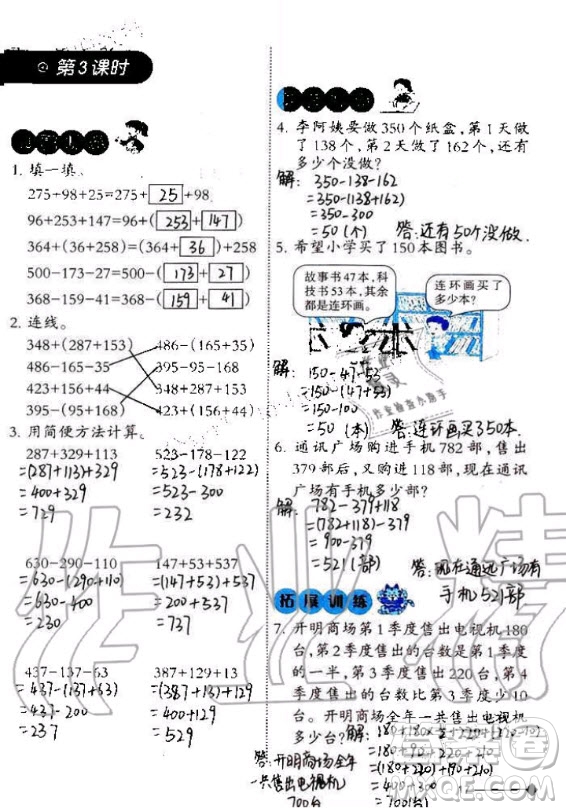 第3课时
1. 填一填。
275+98+25=275+25+98
96+253+147=96+(253+147)
364+(36+258)=(364+36)+258
500-173-27=500-(173+27)
368-159-41=368-(159+41)
2. 连线。
348+(287+153) 486-(165+35)
486-165-35 395-95-168
423+156+44 348+287+153
395-(95+168) 423+(156+44)
3. 用简便方法计算。
287+329+113 523-178-122
=(287+113)+329 =523-(178+122)
=400+329 =523-300
=729 =232
630-290-110 147+53+537
=630-(290+110) =(147+53)+537
=630-400 =200+537
=230 =737
437-137-63 387+129+13
=437-(137+63) =(387+13)+129
=437-200 =400+129
=237 =529
4. 李阿姨要做350个纸盒,第1天做
了138个,第2天做了162个,还有
多少个没做?
解: 350-138-162
=350-(138+162)
=350-300
=50(个) 答:还有50个没做.
5. 希望小学买了150本图书。
故事书47本,科
技书53本,其余
都是连环画。
连环画买了
多少本?
解: 150-47-53
=150-(47+53)
=150-100
=50(本) 答:连环画买350本.
6. 通讯广场购进手机782部,售出
379部后,又购进118部,现在通讯
广场有手机多少部?
解: 782-379+118
=(782+118)-379
=900-379
=521(部) 答:现在通讯广场有
手机521部
拓展训练
7. 开明商场第1季度售出电视机180
台,第2季度售出的台数是第1季度
的一半,第3季度售出220台,第4
季度售出的台数比第3季度少10
台。开明商场全年一共售出电视机
多少台?
=180+90+220+210
答:开明商场全年
一共售出电视机
700台
=700(台)
作业精